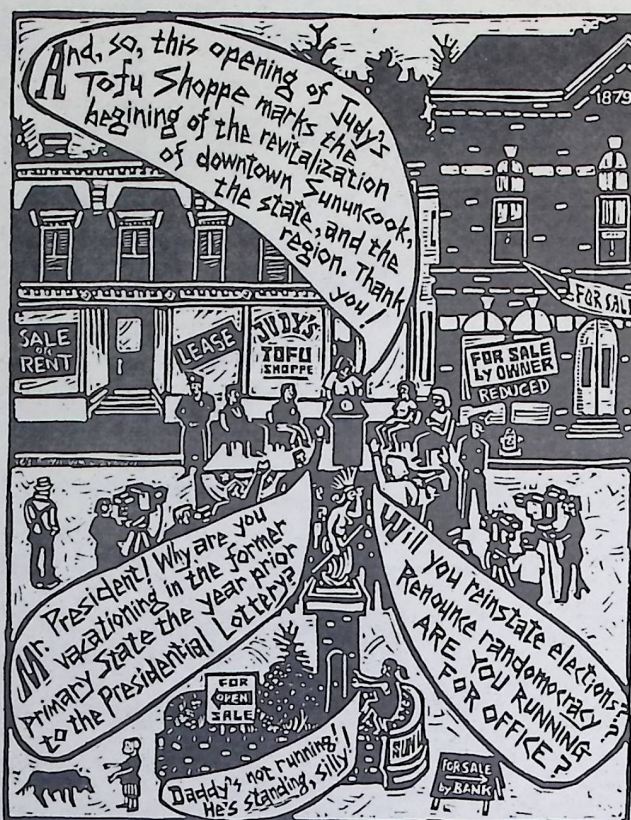 And, so, this opening of Judy's
Tofu Shoppe marks the
begining of the revitalization
of downtown Sununcook,
the state, and the
region. Thank
you!
1879
FOR SALE
SALE
or
RENT
LEASE
JUDY'S
TOFU
SHOPPE
FOR SALE
by OWNER
REDUCED
Mr. President! Why are you
vacationing in the former
primary State the year prior
to the Presidential Lottery?
Will you reinstate elections?
Renounce randomocracy?
ARE YOU RUNNING
FOR OFFICE?
FOR
OPEN
SALE
Daddy's not running!
He's standing, silly!
SUNU
FOR SALE
by BANK